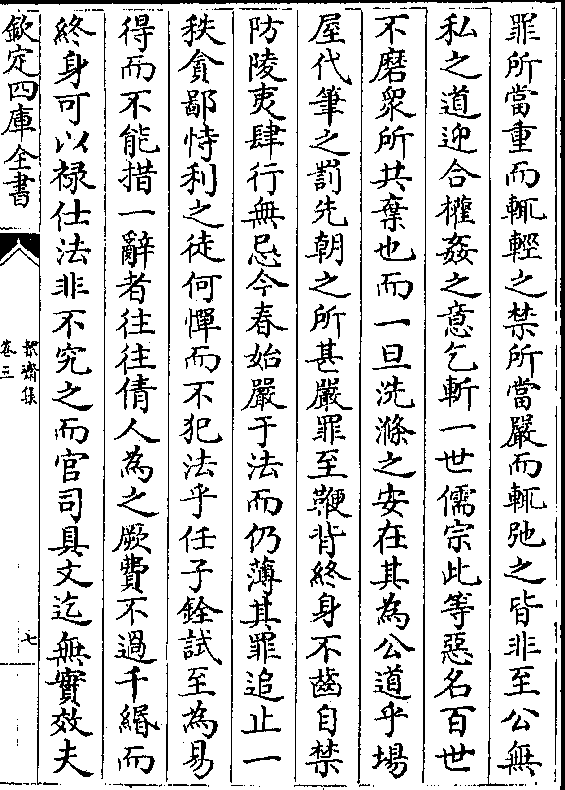 罪所當重而輒輕之禁所當嚴而輒弛之皆非至公無
私之道迎合權姦之意乞斬一世儒宗此等惡名百世
不磨衆所共棄也而一旦洗滌之安在其為公道乎場
屋代筆之罰先朝之所甚嚴罪至鞭背終身不齒自禁
防陵夷肆行無忌今春始嚴于法而仍薄其罪追止一
秩貪鄙恃利之徒何憚而不犯法乎任子銓試至為易
得而不能措一辭者往往倩人為之厥費不過千緡而
終身可以禄仕法非不究之而官司具文迄無實效夫
欽定四庫全書
絜齋集
卷三
七